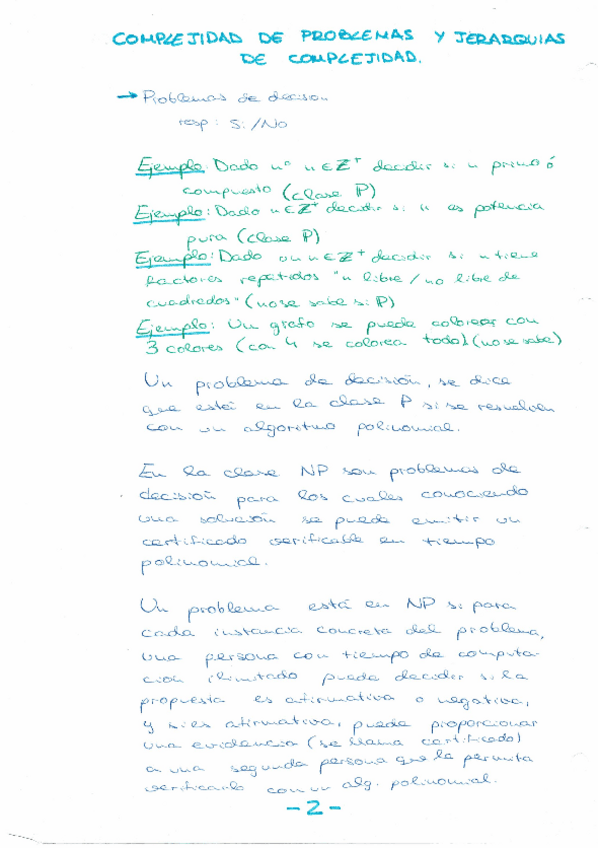 COMPLEJIDAD DE PROBLEMAS Y JERARQUIAS
DE COMPLEJIDAD.
→ Problemas de decision
resp: Si/No
Ejemplo: Dado nº n ∈ Z⁺ decidir si n primo ó
compuesto (clase P)
Ejemplo: Dado n ∈ Z⁺ decidir si n es potencia
pura (clase P)
Ejemplo: Dado un n ∈ Z⁺ decidir si n tiene
factores repetidos "n libre / no libre de
cuadrados" (no se sabe si P)
Ejemplo: Un grafo se puede colorear con
3 colores (con 4 se colorea todo) (no se sabe)
Un problema de decisión, se dice
que está en la clase P si se resuelven
con un algoritmo polinomial.
En la clase NP son problemas de
decisión para los cuales conociendo
una solución se puede emitir un
certificado verificable en tiempo
polinomial.
Un problema está en NP si para
cada instancia concreta del problema,
una persona con tiempo de computa-
ción ilimitado puede decidir si la
propuesta es afirmativa o negativa,
y si es afirmativa, puede proporcionar
una evidencia (se llama certificado)
a una segunda persona que le permita
verificarlo con un alg. polinomial.
-2-